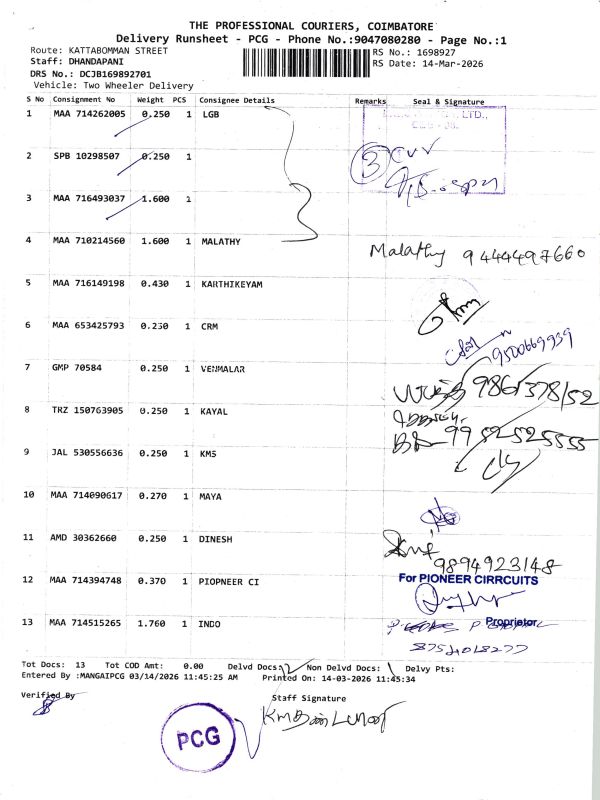 THE PROFESSIONAL COURIERS, COIMBATORE
Delivery Runsheet - PCG - Phone No.:9047080280 - Page No.:1
Route: KATTABOMMAN STREET
RS No.: 1698927
Staff: DHANDAPANI
RS Date: 14-Mar-2026
DRS No.: DCJB169892701
Vehicle: Two Wheeler Delivery
S No Consignment No Weight PCS Consignee Details Remarks Seal & Signature
1 MAA 714262005 0.250 1 LGB
LTD.,
2 SPB 10298507 0.250 1
3 CVV
3 MAA 716493037 1.600 1
4 MAA 710214560 1.600 1 MALATHY Malathy 9444497660
5 MAA 716149198 0.430 1 KARTHIKEYAM
6 MAA 653425793 0.230 1 CRM
9500669939
7 GMP 70584 0.250 1 VENMALAR
8 TRZ 150763905 0.250 1 KAYAL
9952525555
9 JAL 530556636 0.250 1 KMS
10 MAA 714090617 0.270 1 MAYA
11 AMD 30362660 0.250 1 DINESH
9894923148
12 MAA 714394748 0.370 1 PIOPNEER CI For PIONEER CIRRCUITS
13 MAA 714515265 1.760 1 INDO Proprietor
8754018277
Tot Docs: 13 Tot COD Amt: 0.00 Delvd Docs: 12 Non Delvd Docs: 1 Delvy Pts:
Entered By :MANGAIPCG 03/14/2026 11:45:25 AM Printed On: 14-03-2026 11:45:34
Verified By Staff Signature
PCG